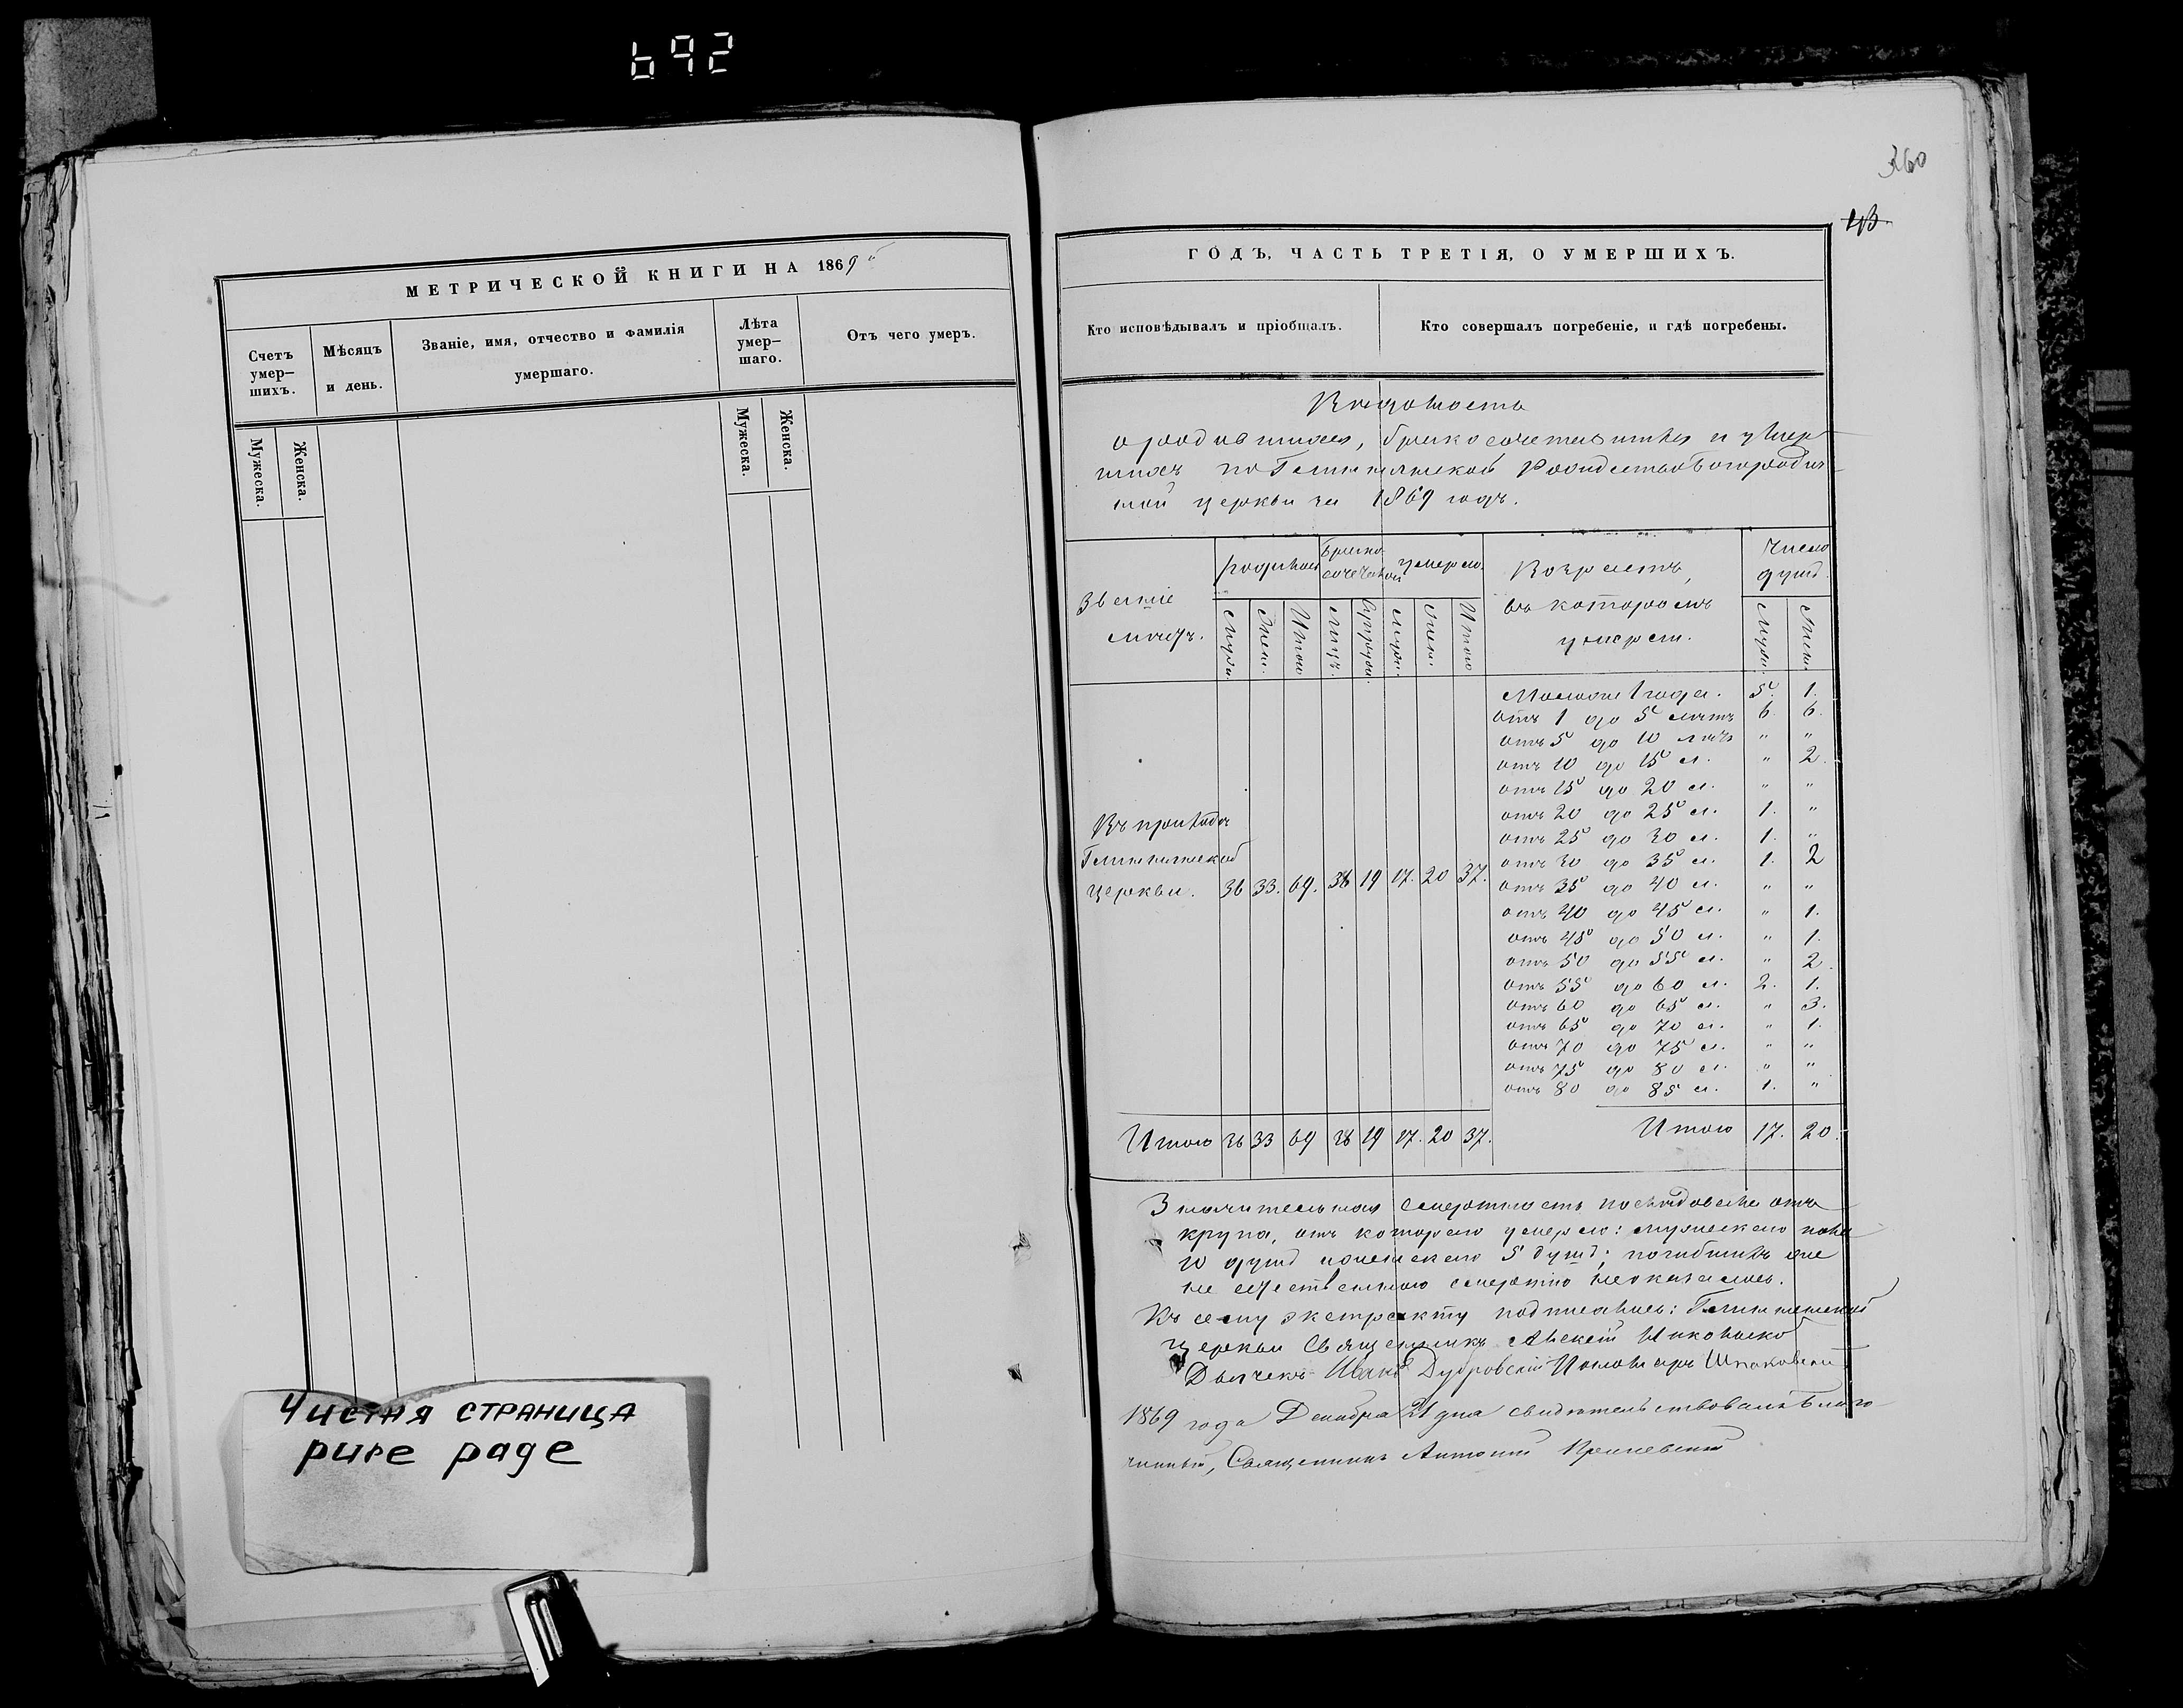 692
360
43.
МЕТРИЧЕСКОЙ КНИГИ НА 1869й
Счетъ умер–шихъ.
Мѣсяцъ и день.
Званіе, имя, отчество и фамилія умершаго.
Лѣта умер–шаго.
Отъ чего умеръ.
Мужеска.
Женска.
Мужеска.
Женска.
Чистая страница
pure page
ГОДЪ, ЧАСТЬ ТРЕТІЯ, О УМЕРШИХЪ.
Кто исповѣдывалъ и пріобщалъ.
Кто совершалъ погребеніе, и гдѣ погребены.
Вѣдомость
о родившихся, бракосочетавшихся и умер
шихъ по Рождество Богородич
ной церкви за 1869 годъ.
Званіе лицъ.
родилось
Брако сочеталось
умерло.
Возрастъ, въ которомъ умерли.
Число душъ.
Муж. Жен. Итого Лицъ. Супруж. Муж. Жен. Итого Муж. Жен.
Менѣе 1 года. 5. 1.
отъ 1 до 5 лѣтъ 6. 6.
отъ 5 до 10 лѣтъ " "
отъ 10 до 15 л. " 2.
отъ 15 до 20 л. " "
отъ 20 до 25 л. 1. "
отъ 25 до 30 л. 1. "
отъ 30 до 35 л. 1. 2
отъ 35 до 40 л. " "
отъ 40 до 45 л. " 1.
отъ 45 до 50 л. " 1.
отъ 50 до 55 л. " 2.
отъ 55 до 60 л. 2. 1.
отъ 60 до 65 л. " 3.
отъ 65 до 70 л. " 1.
отъ 70 до 75 л. " "
отъ 75 до 80 л. " "
отъ 80 до 85 л. 1. "
Въ приходѣ
церкви. 36 33. 69. 38 19 17. 20 37.
Итого 36 33 69 38 19 17. 20 37.
Итого 17. 20.
Значительная смертность послѣдовала отъ
крупа, отъ котораго умерло: мужескаго пола
10 душъ и женскаго 5 душъ; погибшихъ же
не естественною смертію не оказалось.
Къ сему экстракту подписались:
церкви Священникъ Алексій
Дьячекъ Иванъ Дубровскій Пономарь Шпаковскій
1869 года Декабря 21 дня свидѣтельствовалъ Благо
чинный, Священникъ Антоній